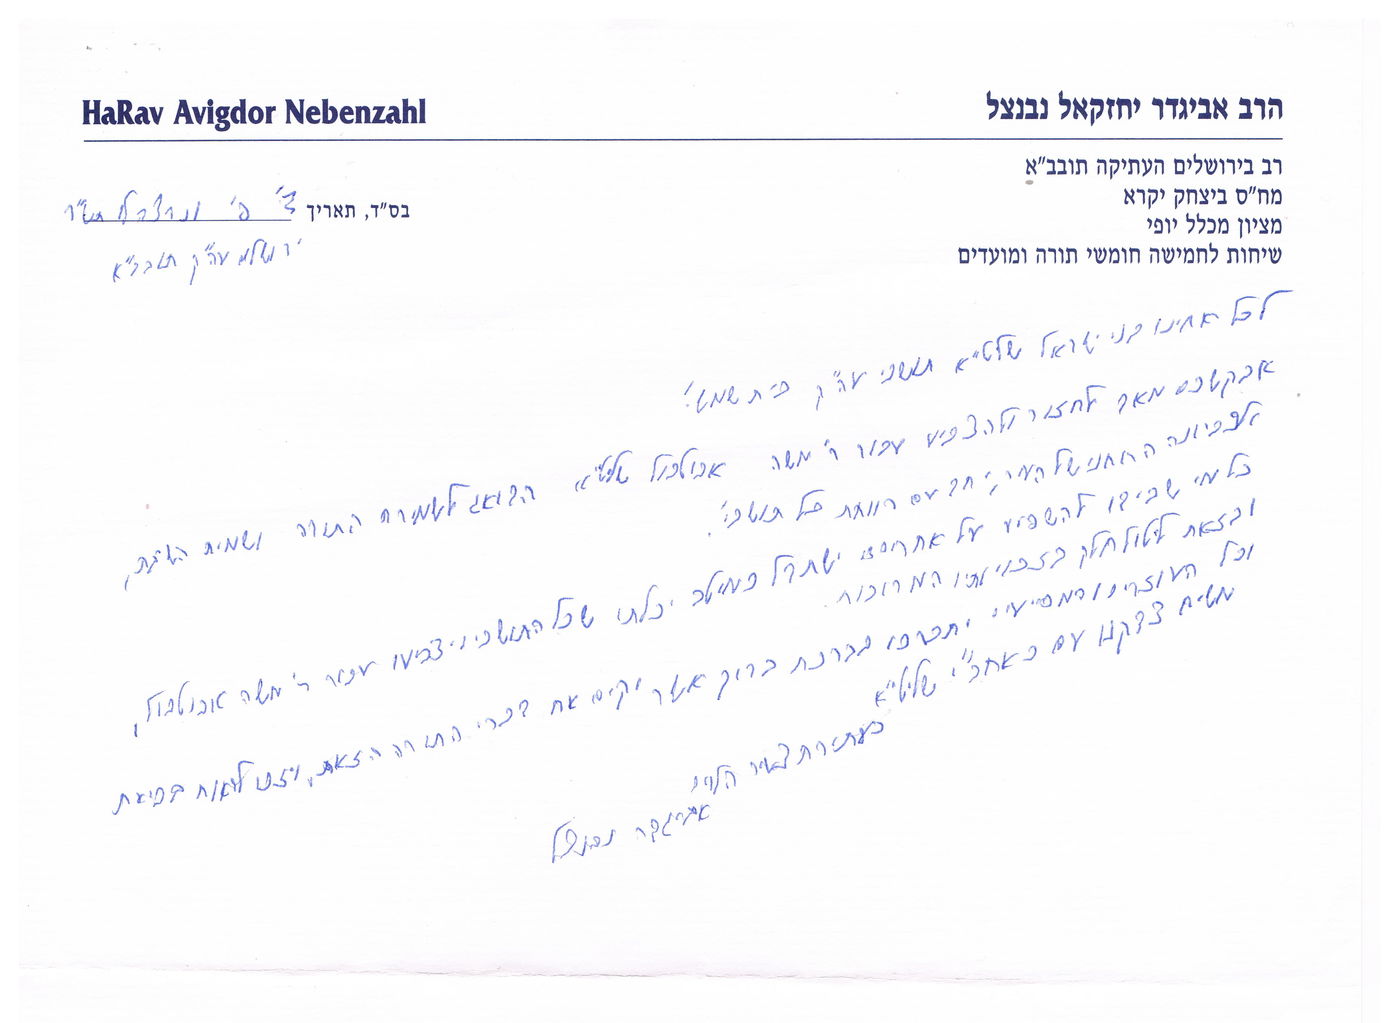 HaRav Avigdor Nebenzahl
הרב אביגדר יחזקאל נבנצל
רב בירושלים העתיקה תובב״א
מח״ס ביצחק יקרא
מציון מכלל יופי
שיחות לחמישה חומשי תורה ומועדים
בס״ד, תאריך
ירושלם עה״ק תובב״א
לכל אחינו בני ישראל שליט״א תושבי עה״ק בית שמש!
אבקשכם מאד לחזור ולהצביע עבור ר' משה אבוטבול שליט״א הדואג לשמירת התורה ושמירת השבת,
הרוחני של העיר, יחד עם רווחת כל תושבי'.
כל מי שבידו להשפיע על אחרים ישתדל כמיטב יכלתו שכל התושבים יצביעו עבור ר' משה אבוטבול,
ובזאת ליטול חלק בזכויותיו המרובות.
וכל העוזרים והמסייעים יתברכו בברכת ברוך אשר יקים את דברי התורה הזאת, ויזכו לראות בביאת
משיח צדקנו עם כ״אחב״י שליט״א
כעתירת צעיר הלוים
אביגדר נבנצל